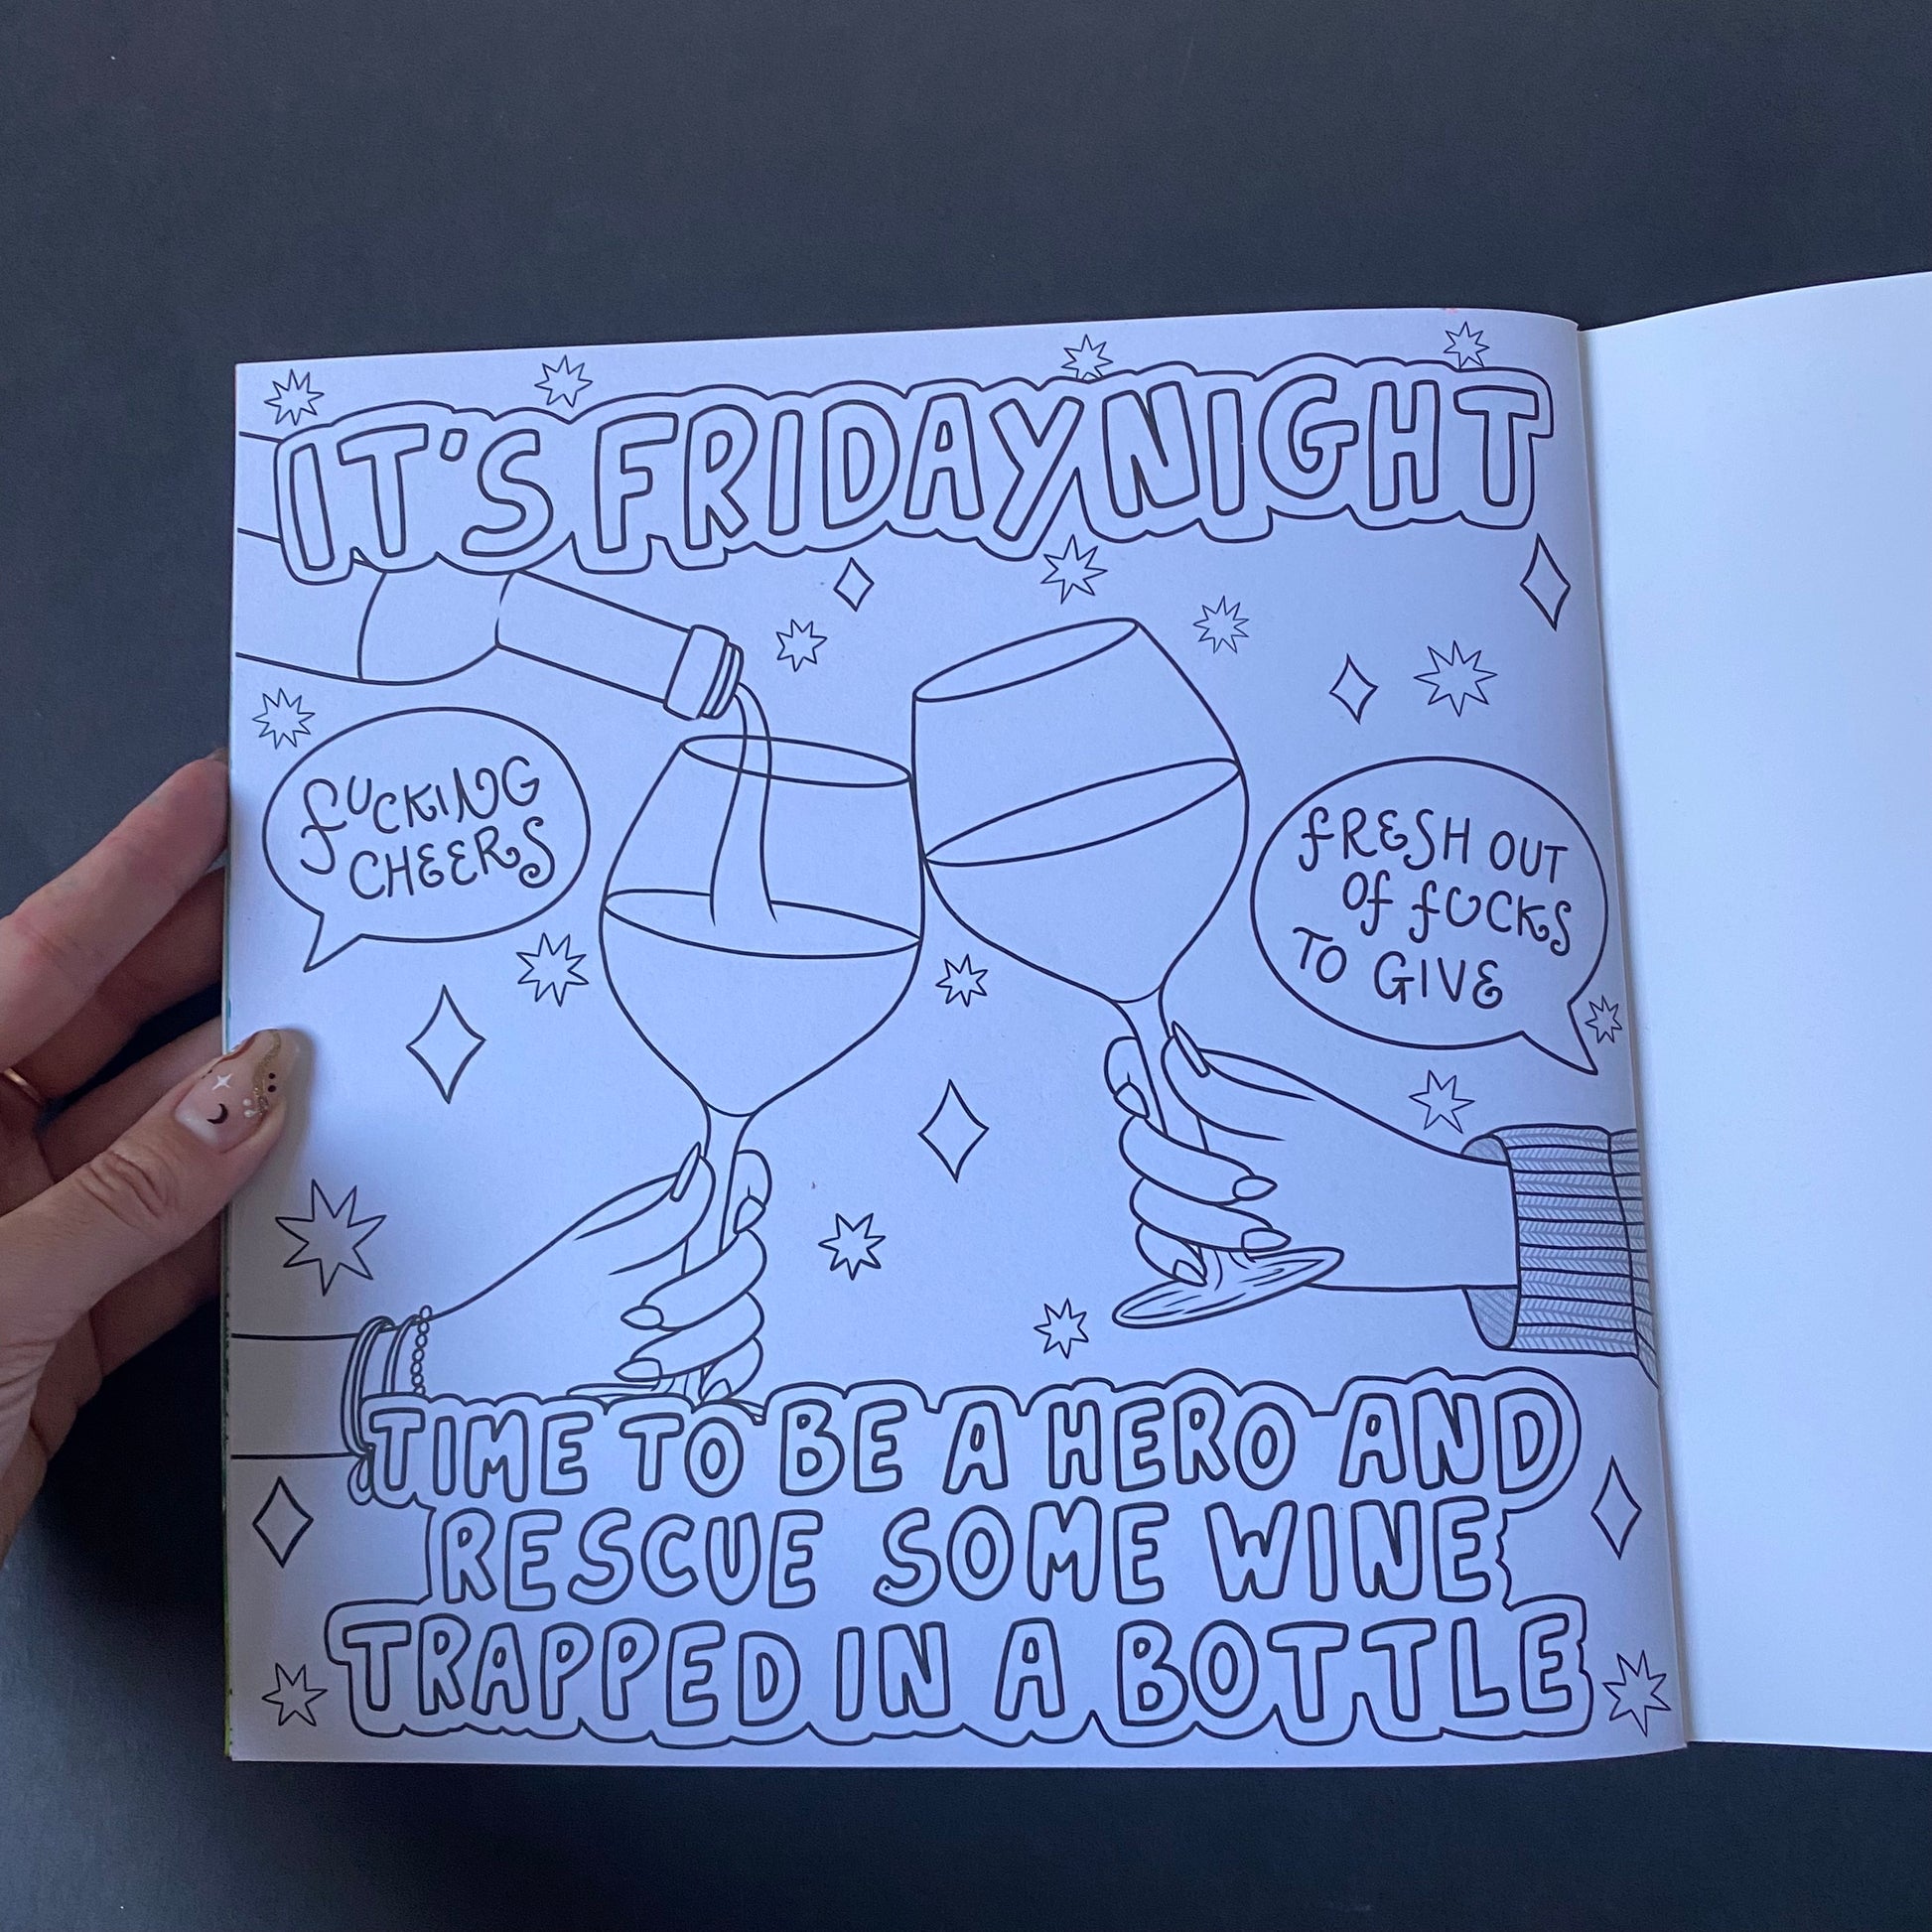 IT'S FRIDAY NIGHT
FUCKING
CHEERS
FRESH OUT
OF FUCKS
TO GIVE
TIME TO BE A HERO AND
RESCUE SOME WINE
TRAPPED IN A BOTTLE